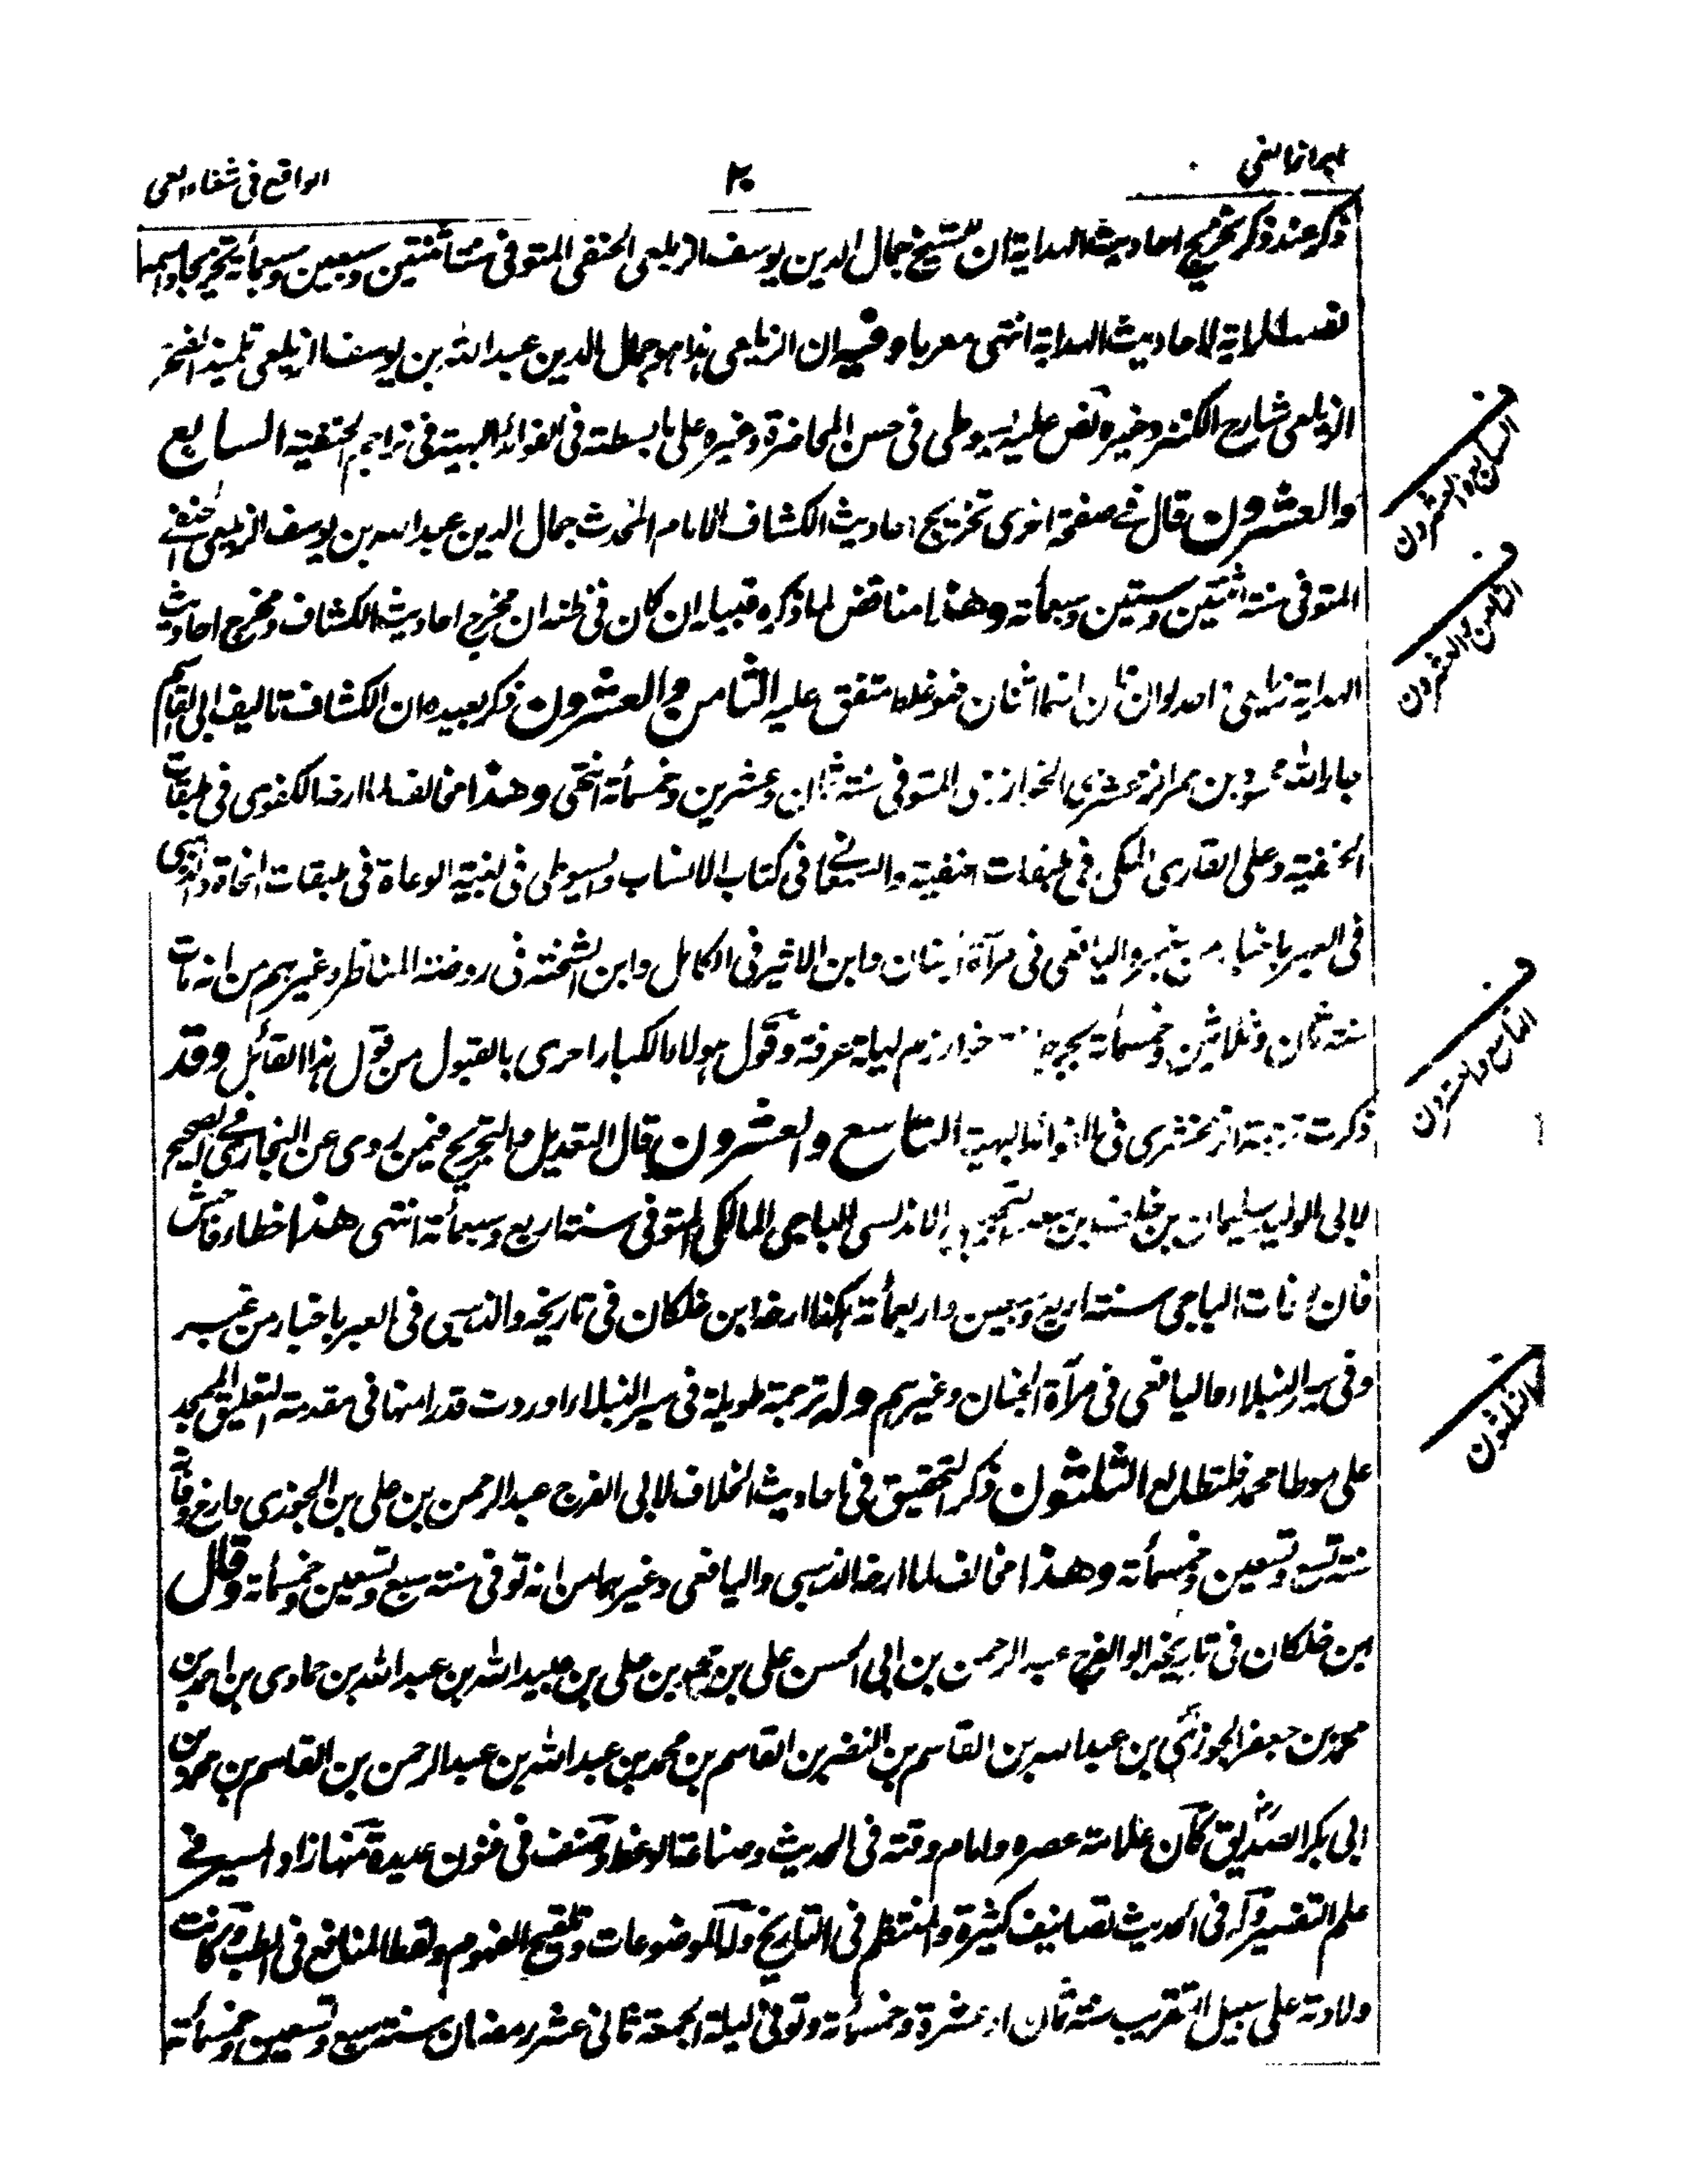 ابراز الغي
٢٠
الواقع في شفاء العي
ذكر عند ذكر تخريج احاديث الهداية ان للشيخ جمال الدين يوسف الزيلعي الحنفي المتوفى سنة اثنتين وستين وسبعمأية تخريجا واسمها
نصب الراية لاحاديث الهداية انتهى معربا وفيه ان الزيلعي هذا هو جمال الدين عبد الله بن يوسف الزيلعي تلميذ الفخر
الزيلعي شارح الكنز وغيره نص عليه السيوطي في حسن المحاضرة وغيره على ما بسطته في الفوائد البهية في تراجم الحنفية السابع
والعشرون قال في صفحة اخرى تخريج احاديث الكشاف للامام المحدث جمال الدين عبد الله بن يوسف الزيلعي الحنفي
المتوفى سنة اثنتين وستين وسبعمأة وهذا مناقض لما ذكره قبيله ان كان في ظنه ان مخرج احاديث الكشاف ومخرج احاديث
الهداية زيلعي واحد وان ظن انهما اثنان فهو غلط متفق عليه الثامن والعشرون ذكر بعيده ان الكشاف تاليف ابي القاسم
جار الله محمود بن عمر الزمخشري الخوارزمي المتوفى سنة ثمان وعشرين وخمسمأة انتهى وهذا مخالف لما ارخه الكفوي في طبقات
الحنفية وعلى القاري المكي في طبقات الحنفية والسمعاني في كتاب الانساب والسيوطي في بغية الوعاة في طبقات النحاة والذهبي
في العبر باخبار من غبر واليافعي في مرآة الجنان وابن الاثير في الكامل وابن الشحنة في روضة المناظر وغيرهم من انه مات
سنة ثمان وثلاثين وخمسمأة بجرجانية خوارزم ليلة عرفة وقول هولاء الكبار احرى بالقبول من قول هذا القائل وقد
ذكرت ترجمة الزمخشري في الفوائد البهية التاسع والعشرون قال التعديل والتجريح فيمن روى عن البخاري في الصحيح
لابي الوليد سليمان بن خلف بن سعد التجيبي الاندلسي الباجي المالكي المتوفى سنة اربع وسبعمأة انتهى هذا خطاء فاحش
فان وفات الباجي سنة اربع وسبعين واربعمأة هكذا ارخه ابن خلكان في تاريخه والذهبي في العبر باخبار من غبر
وفي سير النبلاء واليافعي في مرآة الجنان وغيرهم وله ترجمة طويلة في سير النبلاء اوردت قدرا منها في مقدمة التعليق الممجد
على موطا محمد فلتطالع الثلثون ذكر التحقيق في احاديث الخلاف لابي الفرج عبد الرحمن بن علي بن الجوزي وارخ وفاته
سنة تسع وتسعين وخمسمأة وهذا مخالف لما ارخه الذهبي واليافعي وغيرهما من انه توفي سنة سبع وتسعين وخمسمأة وقال
ابن خلكان في تاريخه ابو الفرج عبد الرحمن بن ابي الحسن علي بن محمد بن علي بن عبيد الله بن عبد الله بن حمادي بن احمد بن
محمد بن جعفر الجوزي بن عبد الله بن القاسم بن النضر بن القاسم بن محمد بن عبد الله بن عبد الرحمن بن القاسم بن محمد بن
ابي بكر الصديق كان علامة عصره وامام وقته في الحديث وصناعة الوعظ وصنف في فنون عديدة منها زاد المسير في
علم التفسير وله في الحديث تصانيف كثيرة والمنتظم في التاريخ وله الموضوعات وتلقيح الفهوم ولقط المنافع في الطب وكانت
ولادته على سبيل التقريب سنة ثمان او عشرة وخمسمأة وتوفي ليلة الجمعة ثاني عشر رمضان سنة سبع وتسعين وخمسمأة
السابع والعشرون
الثامن والعشرون
التاسع والعشرون
الثلثون